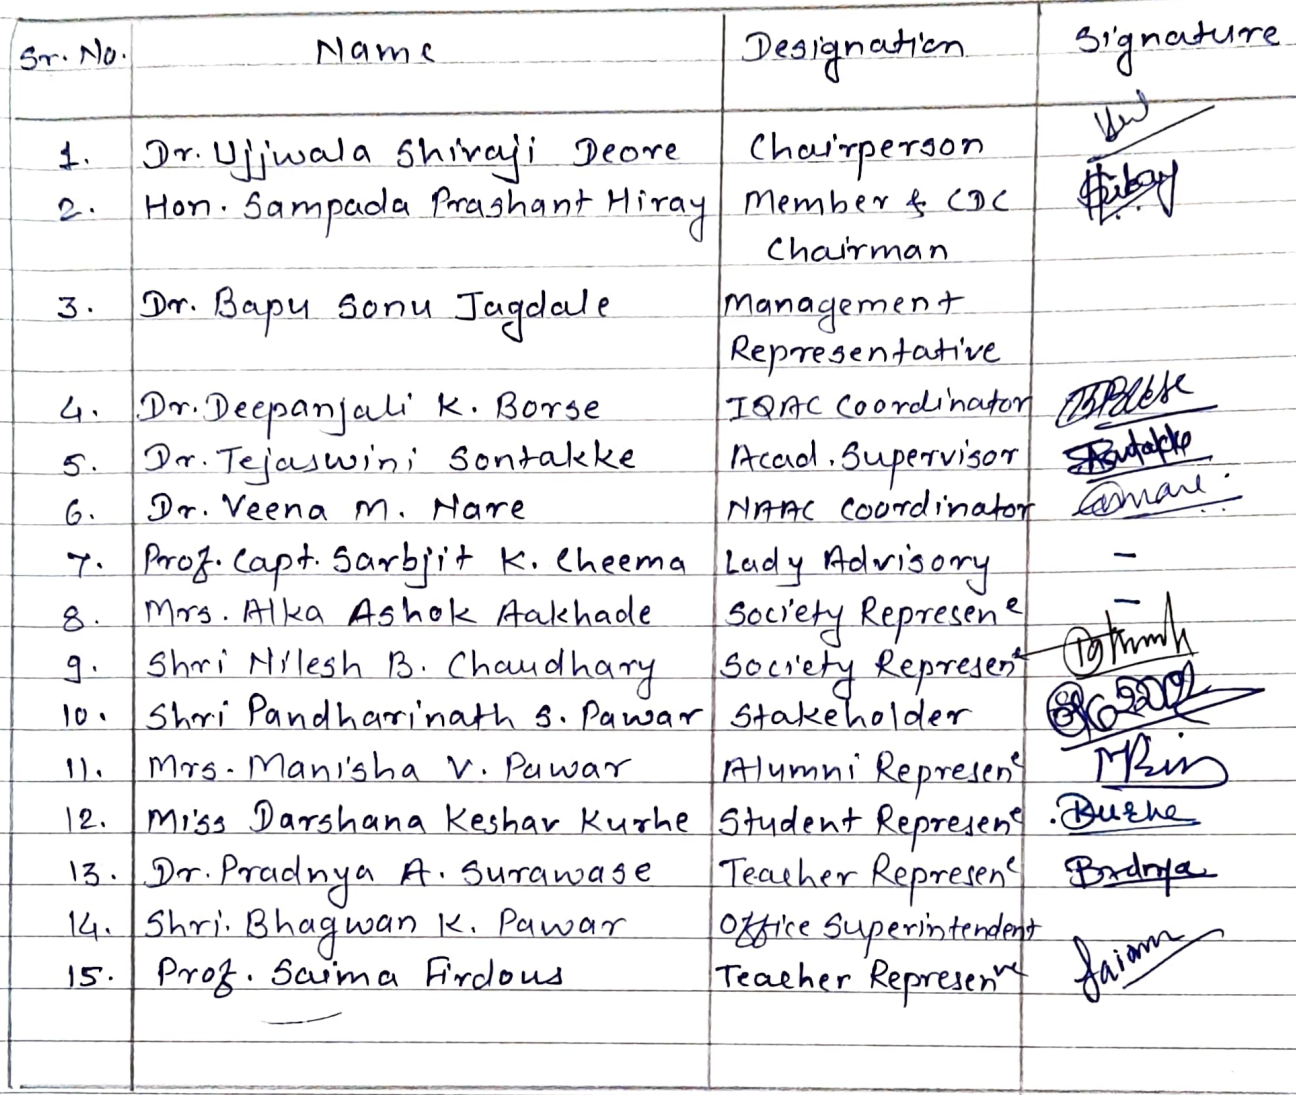 Sr. No. Name Designation Signature
1. Dr. Ujjwala Shivaji Deore Chairperson
2. Hon. Sampada Prashant Hiray Member & CDC
Chairman
3. Dr. Bapu Sonu Jagdale Management
Representative
4. Dr. Deepanjali K. Borse IQAC Coordinator
5. Dr. Tejaswini Sontakke Acad. Supervisor
6. Dr. Veena M. Nare NAAC Coordinator
7. Prof. Capt. Sarbjit K. Cheema Lady Advisory -
8. Mrs. Alka Ashok Aakhade Society Represenᵉ -
9. Shri Nilesh B. Chaudhary Society Represenᵗ
10. Shri Pandharinath S. Pawar Stakeholder
11. Mrs. Manisha V. Pawar Alumni Represenᵉ
12. Miss Darshana Keshav Kurhe Student Represenᵉ Kurhe
13. Dr. Pradnya A. Surawase Teacher Represenᵉ
14. Shri. Bhagwan K. Pawar Office Superintendent
15. Prof. Saima Firdous Teacher Represenᵛᵉ